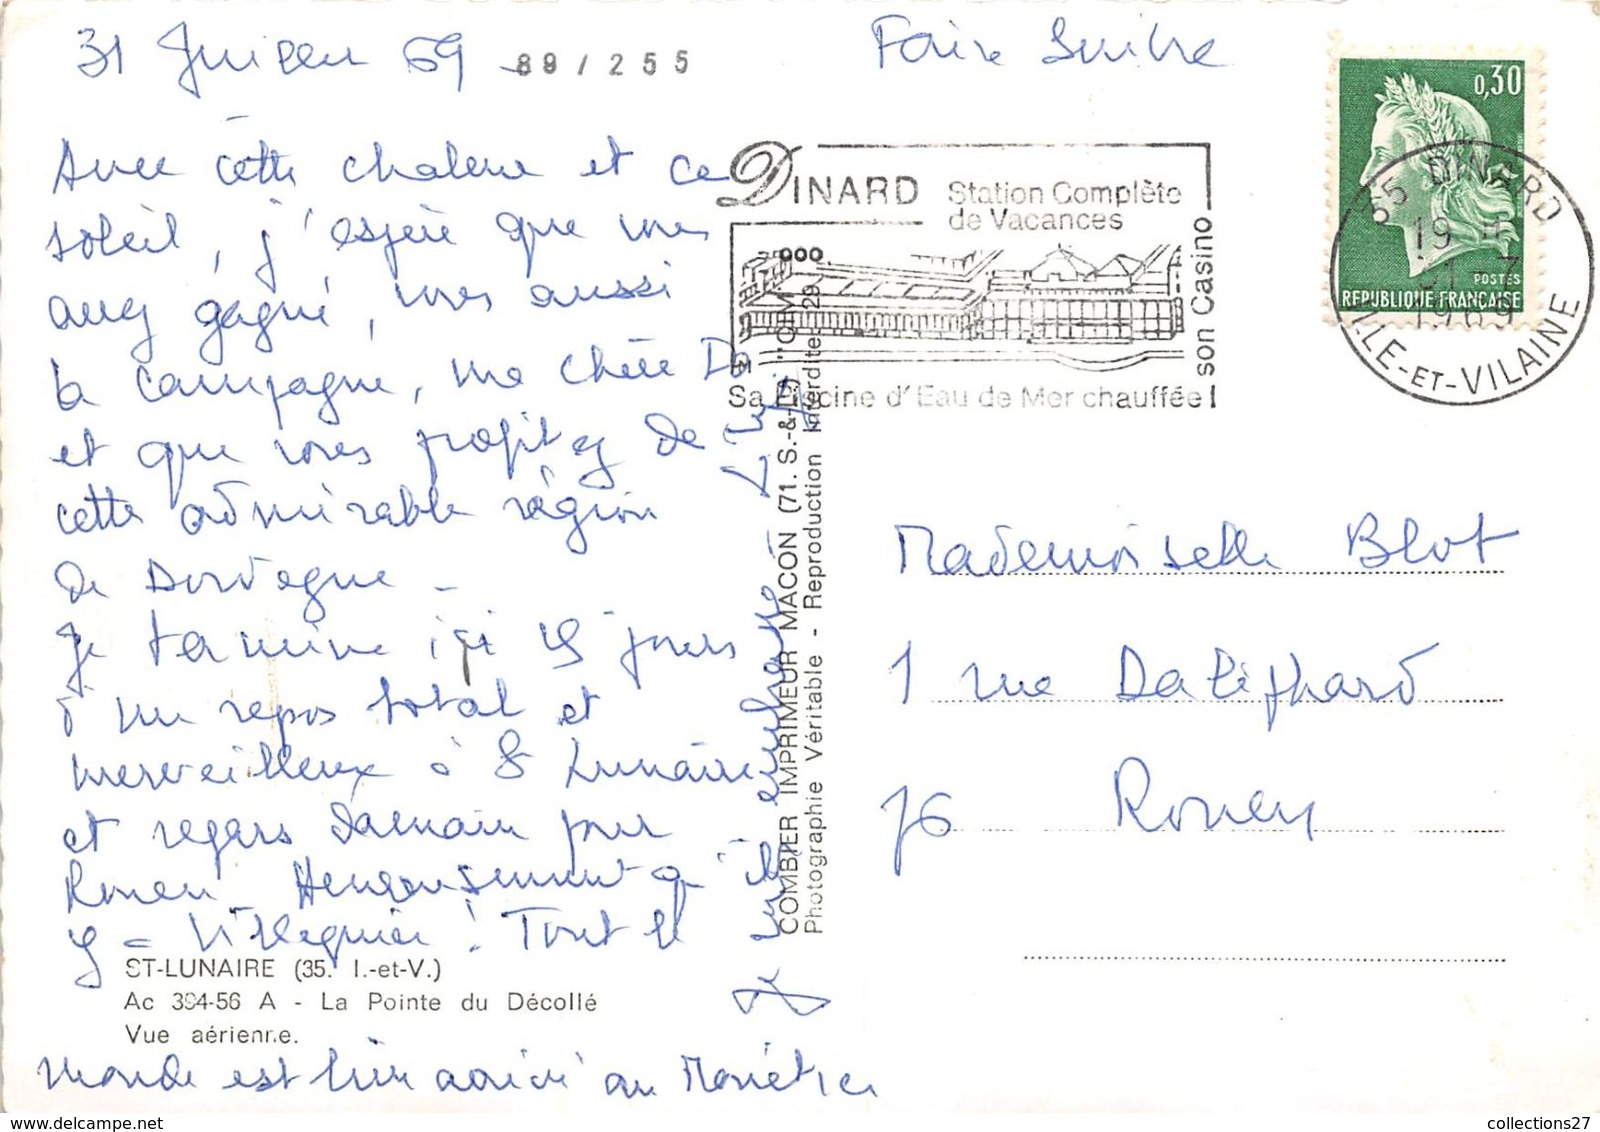 31 Juillet 69
89/255
Faire Suivre
Avec cette chaleur et ce
soleil, j'espère que vous
avez gagné, vous aussi
la campagne, ma chère
et que vous profitez de
cette admirable région
de Dordogne -
Je termine ici 15 jours
d'un repos total et
merveilleux à St Lunaire
et repars demain pour
Rouen. Heureusement qu'il
y a Villequier! Tout le
monde est bien arrivé au
Je vous embrasse
DINARD
Station Complète
de Vacances
son Casino
Sa Piscine d'Eau de Mer chauffée
0,30
POSTES
REPUBLIQUE FRANÇAISE
35 DINARD
19 H
31 - 7
1969
ILLE-ET-VILAINE
COMBIER IMPRIMEUR MACON (71. S.-&-L.) "CIM"
Photographie Véritable - Reproduction Interdite
Mademoiselle Blot
1 rue Daliphard
76 Rouen
ST-LUNAIRE (35. I.-et-V.)
Ac 394-56 A - La Pointe du Décollé
Vue aérienne.
collections27